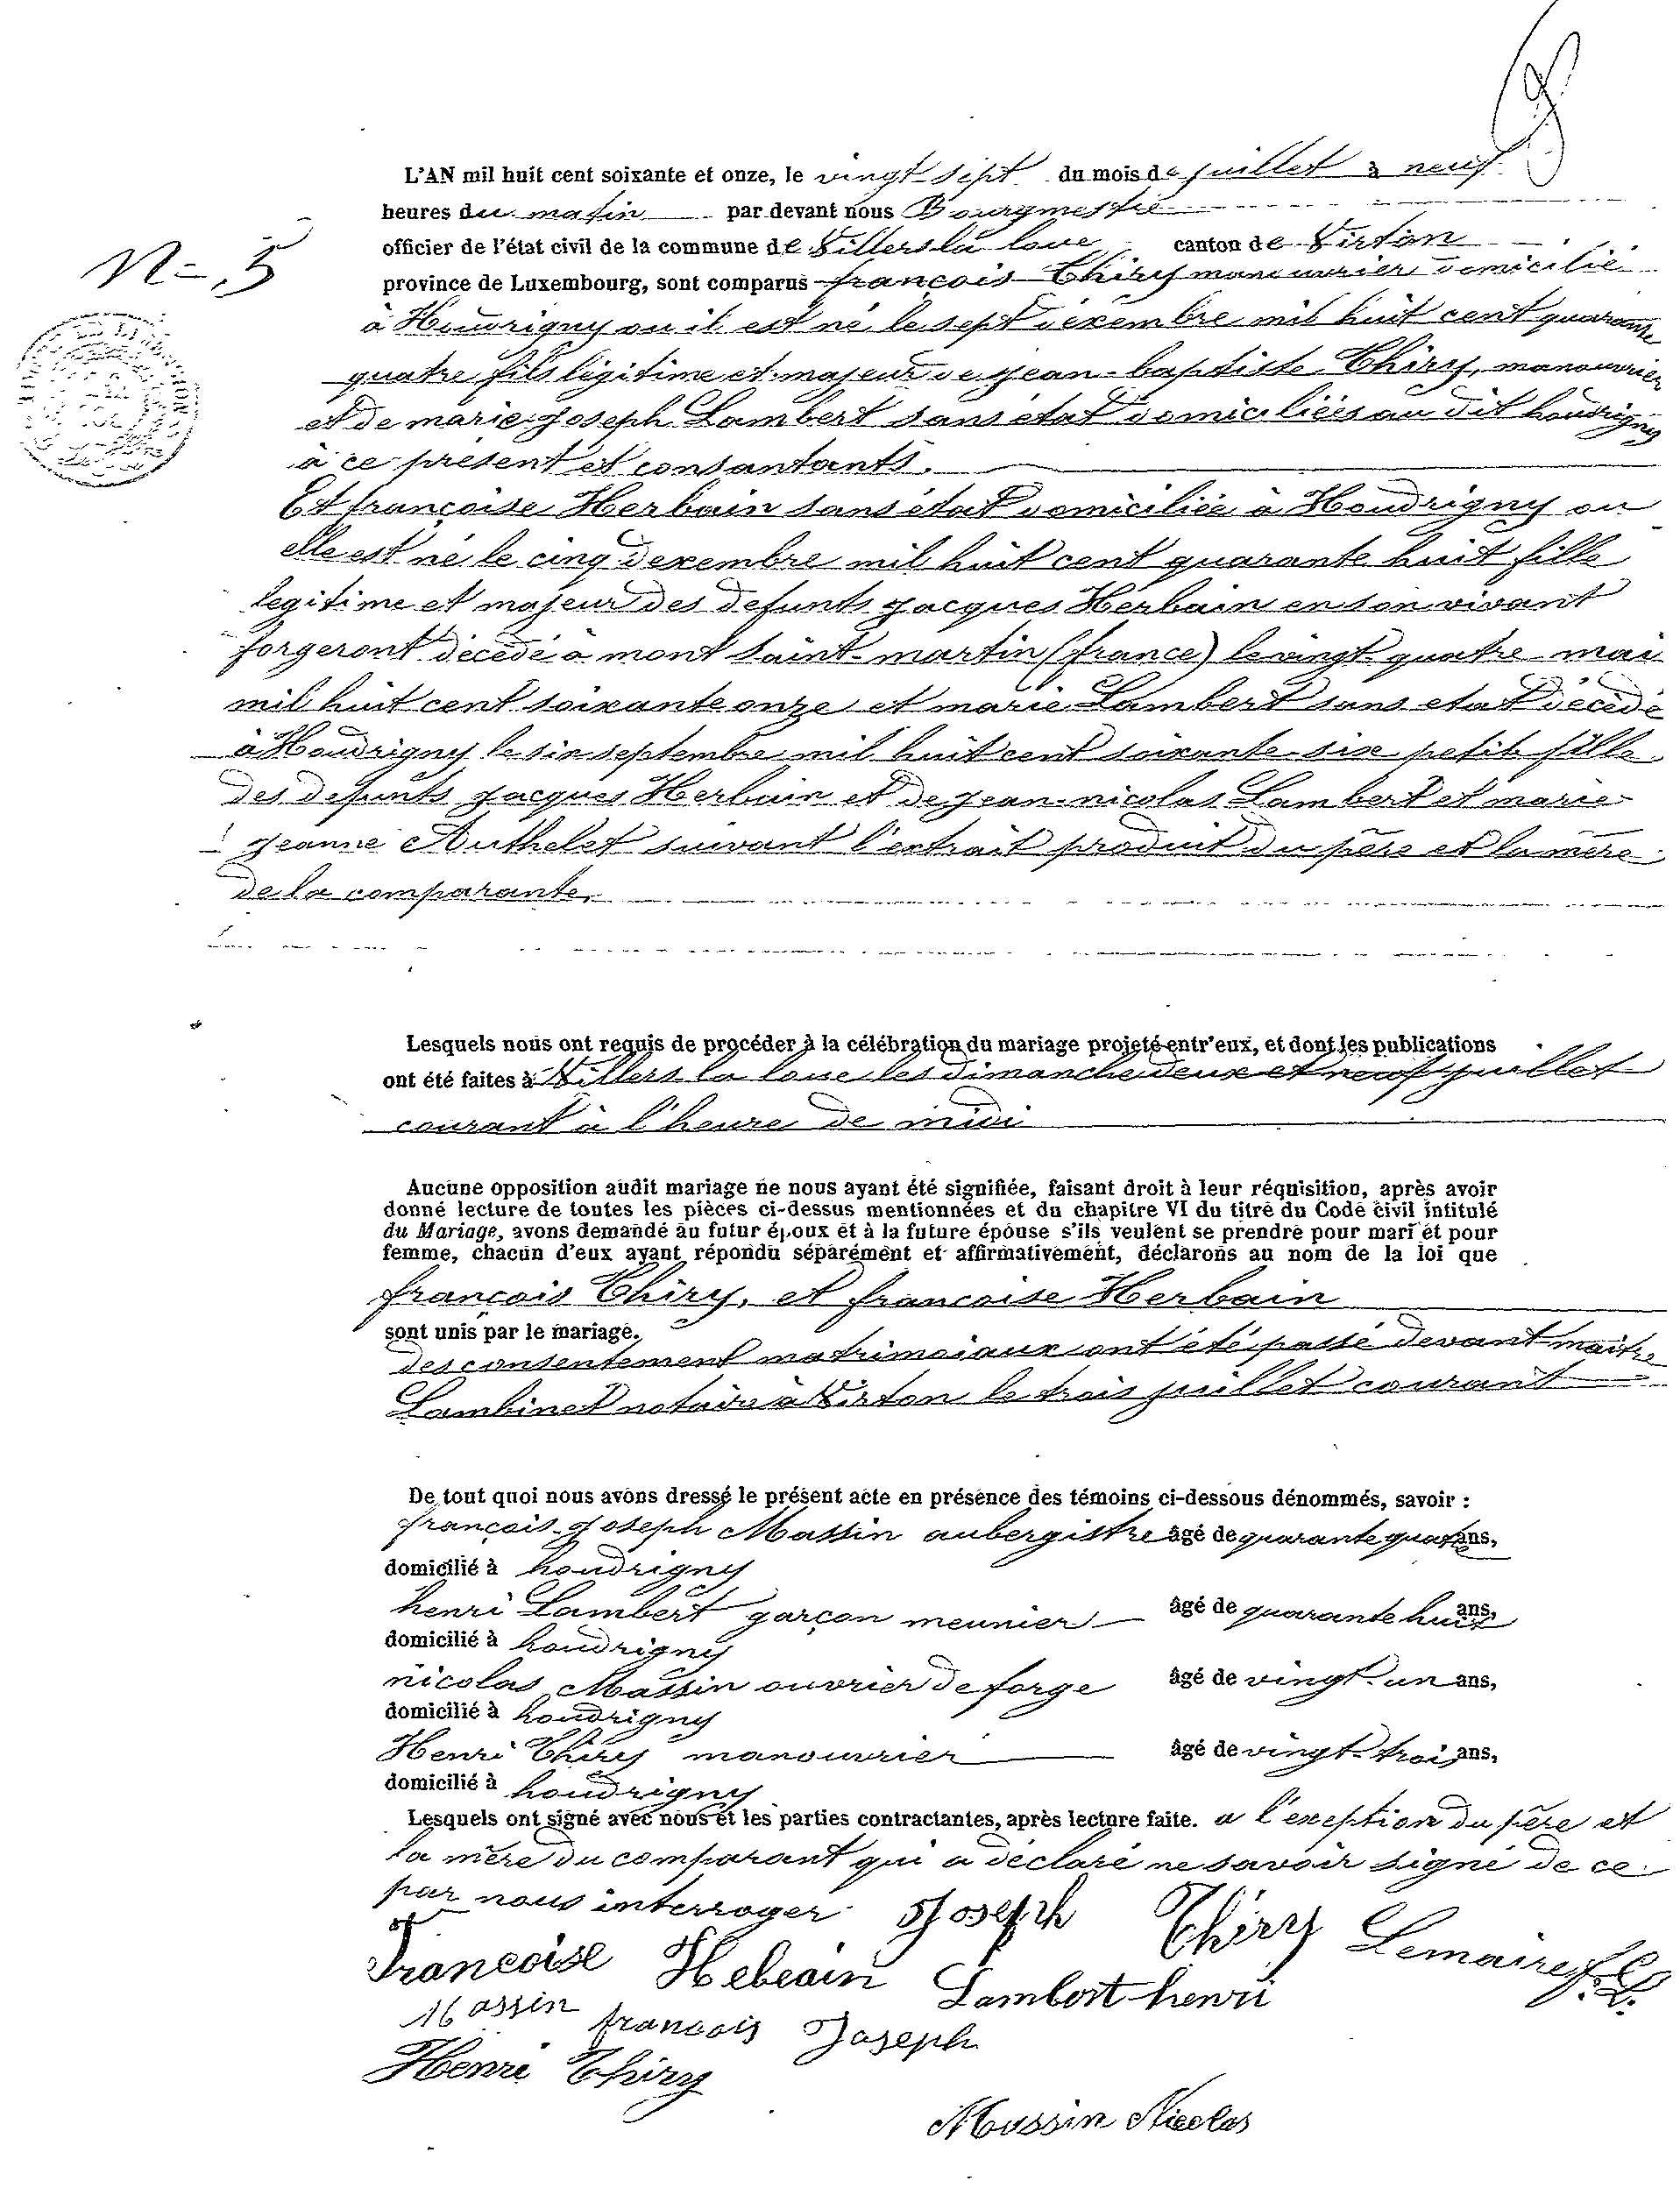 L'AN mil huit cent soixante et onze, le vingt-sept du mois de juillet à neuf
heures du matin par devant nous Bourgmestre
officier de l'état civil de la commune de Villers la loue canton de Virton
N= 5
province de Luxembourg, sont comparus françois Thiry manouvrier domicilié
à Houdrigny ou il est né le sept décembre mil huit cent quarante
quatre fils légitime et majeur de jean-baptiste Thiry, manouvrier
et de marie-joseph Lambert sans état domiciliées au dit houdrigny
à ce présent et consantants.
Et françoise Herbain sans état domiciliée à Houdrigny ou
elle est né le cinq dexembre mil huit cent quarante huit fille
legitime et majeur des defunts jacques Herbain en son vivant
forgeront décédé à mont saint-martin (france) le vingt-quatre mai
mil huit cent soixante onze et marie Lambert sans etat décédé
à Houdrigny le six septembre mil huit cent soixante-six petit fille
des defunts jacques Herbain et de jean-nicolas Lambert et marie-
jeanne Authelet suivant l'extrait produit du père et la mère
de la comparante.
Lesquels nous ont requis de procéder à la célébration du mariage projeté entr'eux, et dont les publications
ont été faites à Villers la loue les dimanche deux et neuf juillet
courant à l'heure de midi
Aucune opposition audit mariage ne nous ayant été signifiée, faisant droit à leur réquisition, après avoir
donné lecture de toutes les pièces ci-dessus mentionnées et du chapitre VI du titre du Code civil intitulé
du Mariage, avons demandé au futur époux et à la future épouse s'ils veulent se prendre pour mari et pour
femme, chacun d'eux ayant répondu séparément et affirmativement, déclarons au nom de la loi que
françois Thiry, et francoise Herbain
sont unis par le mariage.
des consentement matrimoiaux ont été passé devant maitre
Lambinet notaire à Virton le trois juillet courant
De tout quoi nous avons dressé le présent acte en présence des témoins ci-dessous dénommés, savoir :
françois-joseph Massin aubergistre âgé de quarante quatre ans,
domicilié à houdrigny
henri Lambert garçon meunier âgé de quarante huit ans,
domicilié à houdrigny
nicolas Massin ouvrier de forge âgé de vingt-un ans,
domicilié à houdrigny
Henri Thiry manouvrier âgé de vingt-trois ans,
domicilié à houdrigny
Lesquels ont signé avec nous et les parties contractantes, après lecture faite. a l'exeption du père et
la mère du comparant qui a déclaré ne savoir signé de ce
par nous interroger Joseph Thiry Lemaire
Francoise Hebeain Lambert henri
Massin francois Joseph
Henri Thiry
Massin Nicolas